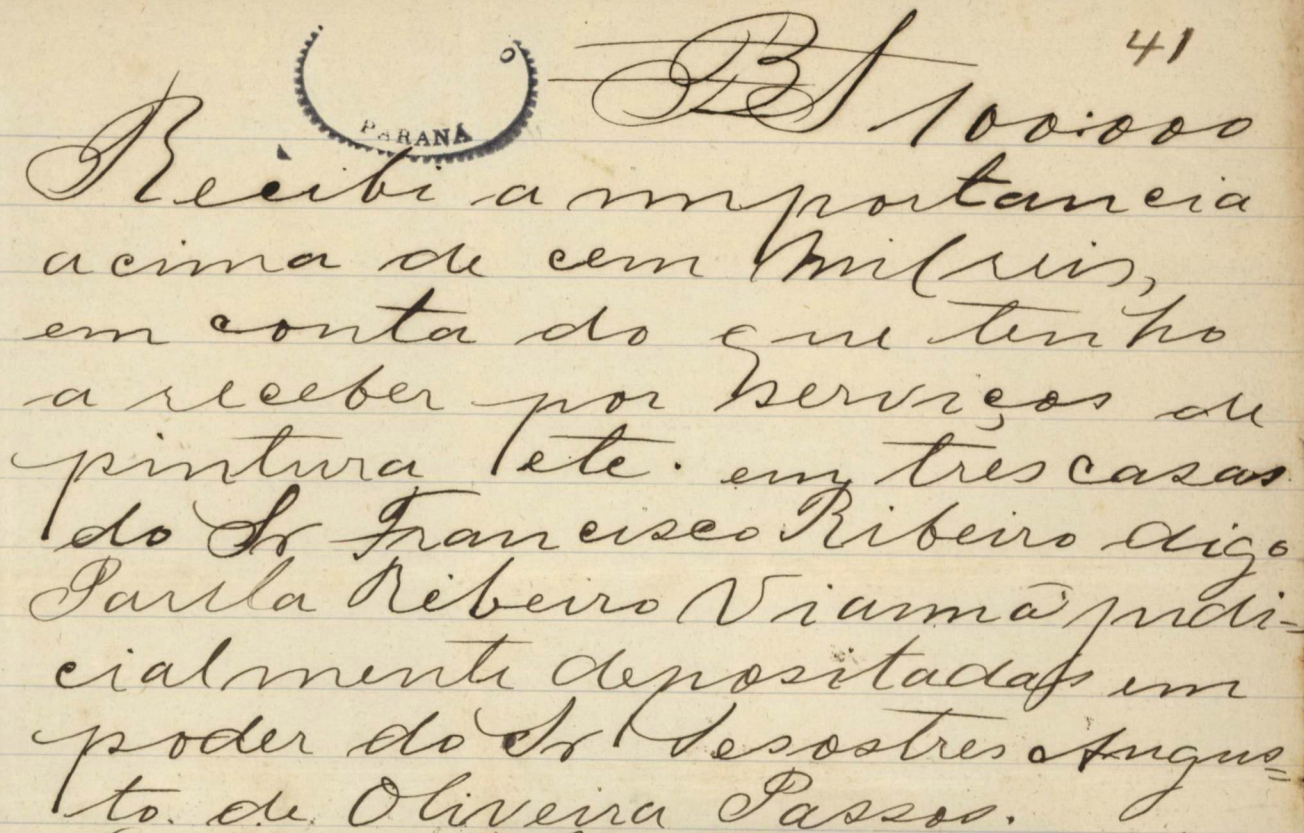 41
PARANÁ
BS 100:000
Recibi a importancia
acima de cem mil reis,
em conta do que tenho
a receber por serviços de
pintura etc. em tres casas
do Sr Francisco Ribeiro digo
Paula Ribeiro Vianna judi-
cialmente depositadas em
poder do Sr Sesostres Augus=
to de Oliveira Passos.